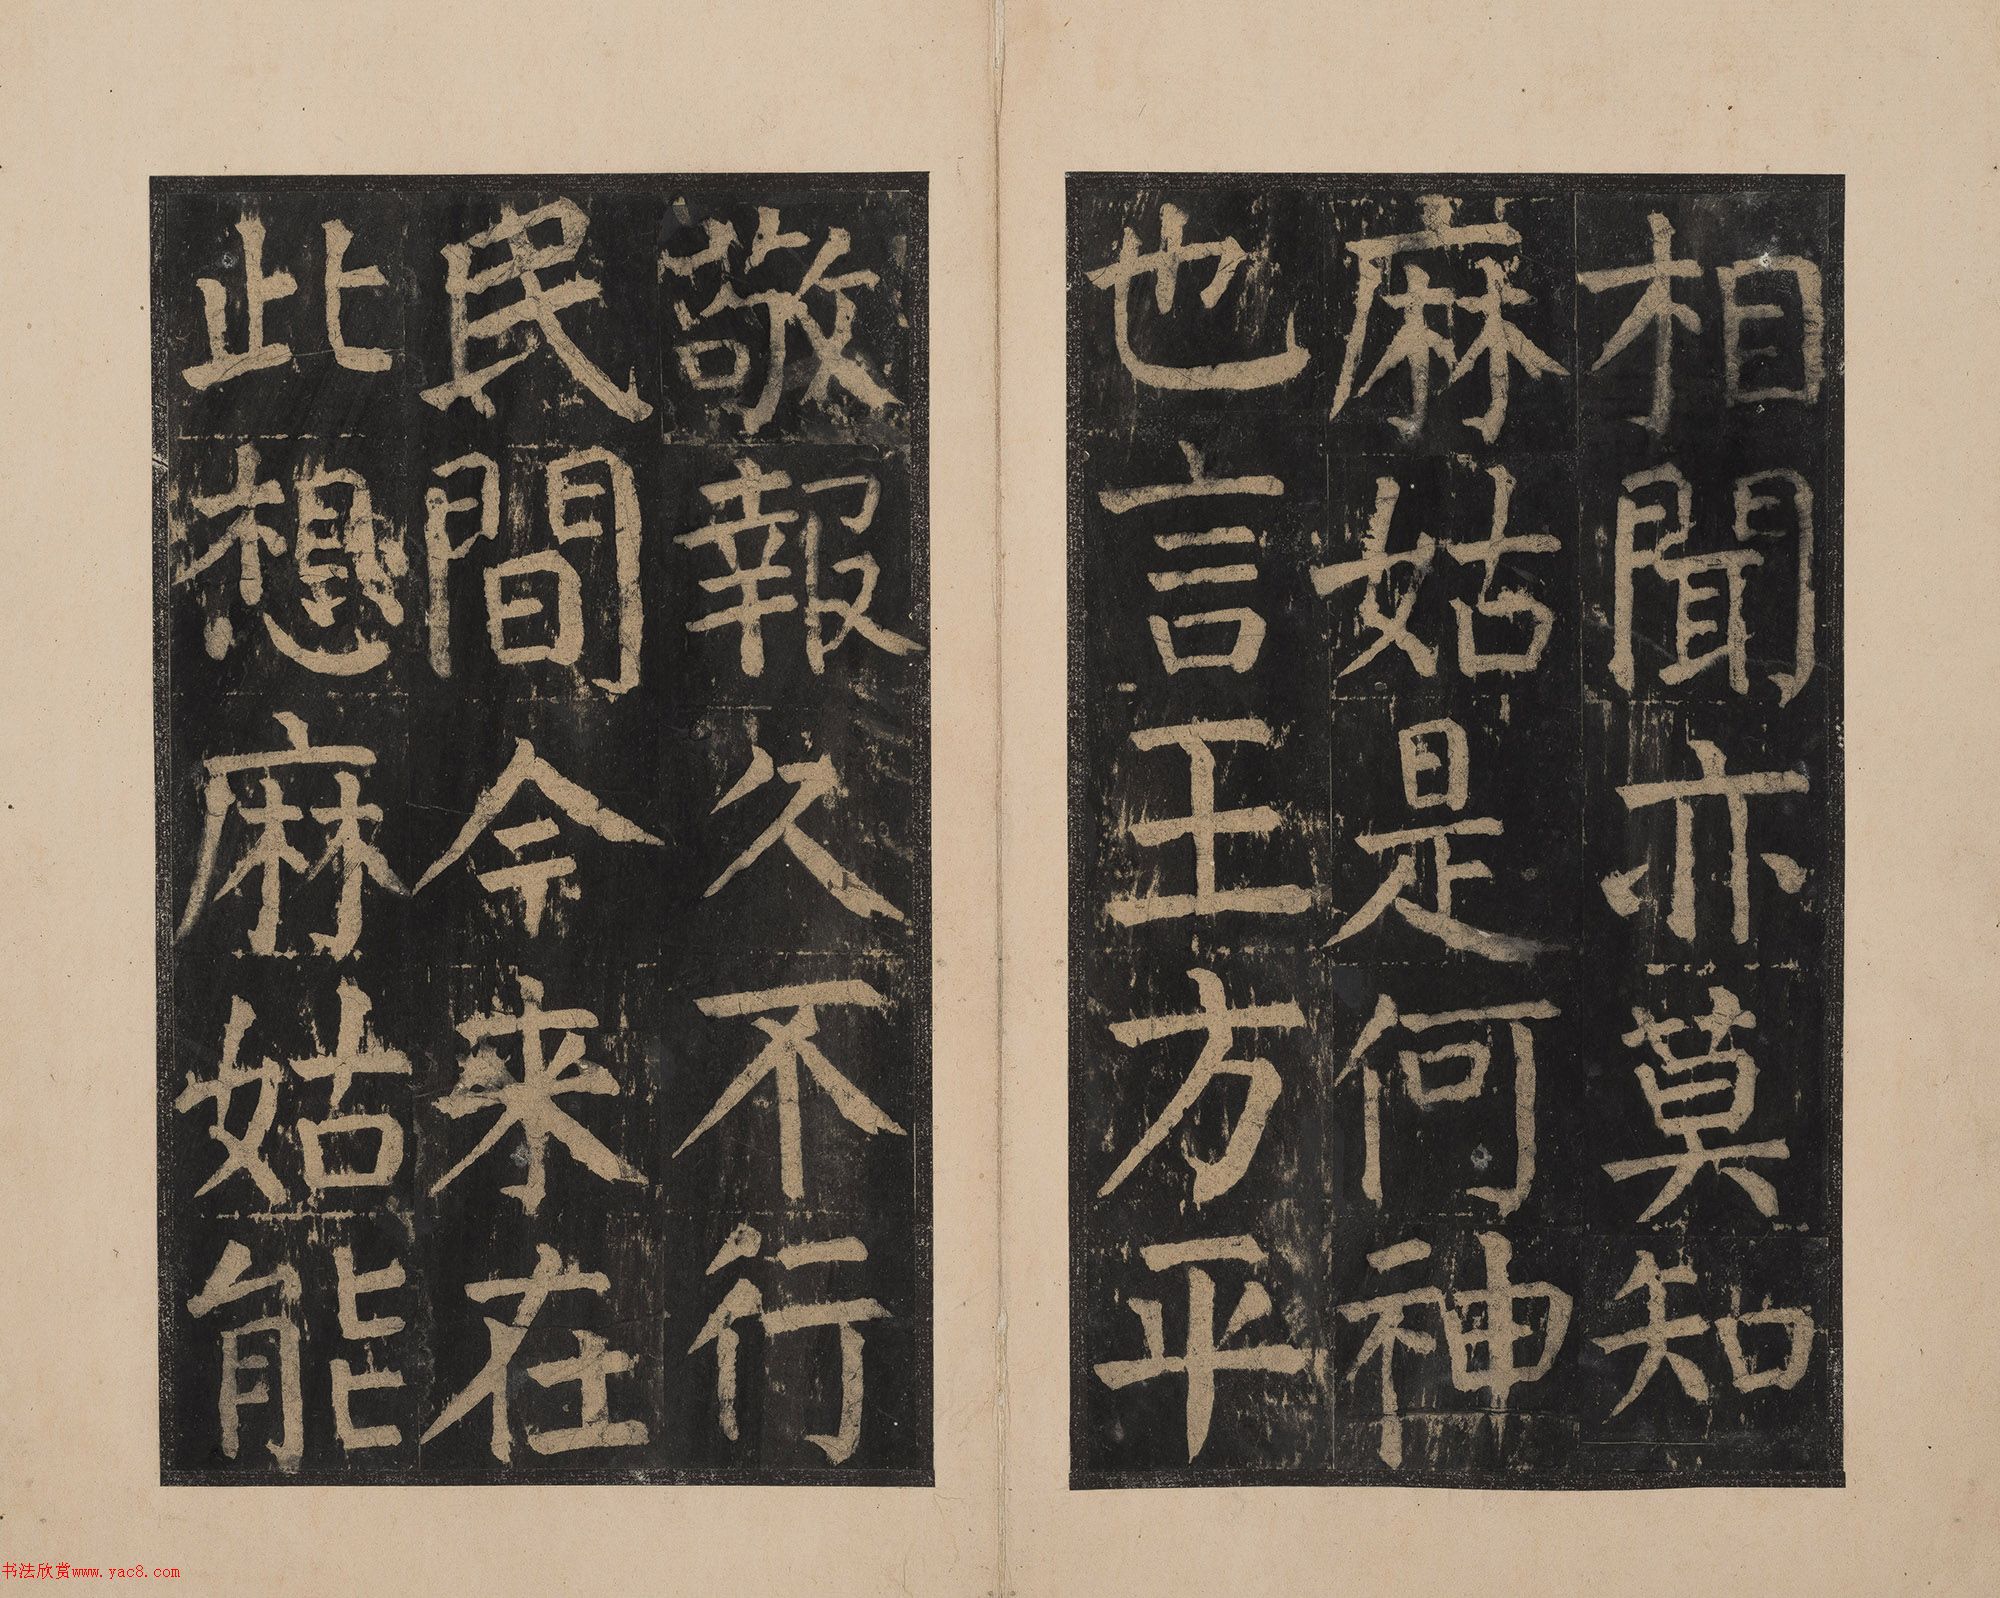 相聞亦莫知
麻姑是何神
也言王方平
敬報久不行
民間今来在
此想麻姑能
书法欣赏www.yac8.com